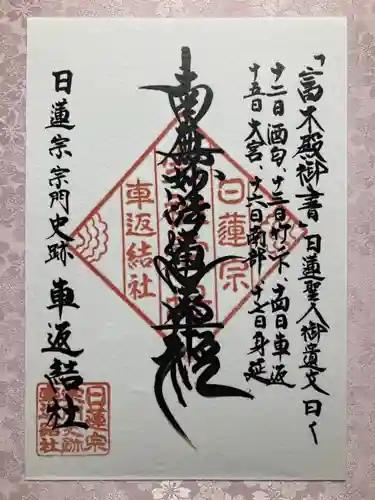 「富木殿御書」日蓮聖人御遺文曰く
十二日酒匂、十三日竹ノ下、十四日車返
十五日大宮、十六日南部、十七日身延
南無妙法蓮華経
日蓮宗
車返結社
日蓮宗宗門史跡 車返結社
日蓮宗
宗門史跡
車返結社